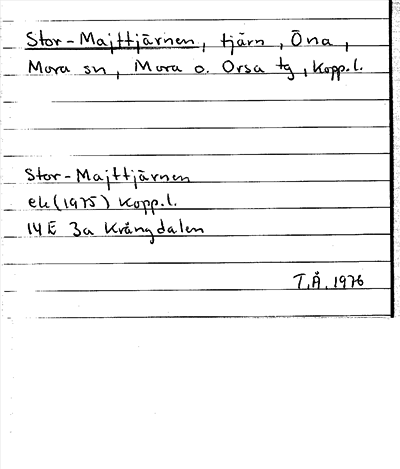 Stor-Majttjärnen, tjärn, Öna,
Mora sn, Mora o. Orsa tg, Kopp.l.
Stor-Majttjärnen
ek (1975) Kopp.l.
14E 3a Krångdalen
T.Å. 1976